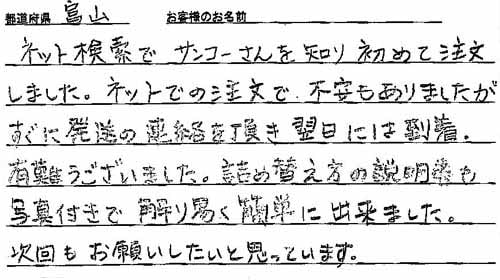 都道府県 富山 お客様のお名前
ネット検索で サンコーさんを 知り 初めて注文
しました。ネットでの注文で、不安もありましたが
すぐに発送の連絡を頂き 翌日には到着。
有難うございました。詰め替え方の説明書も
写真付きで 解り易く 簡単に出来ました。
次回もお願いしたいと思っています。